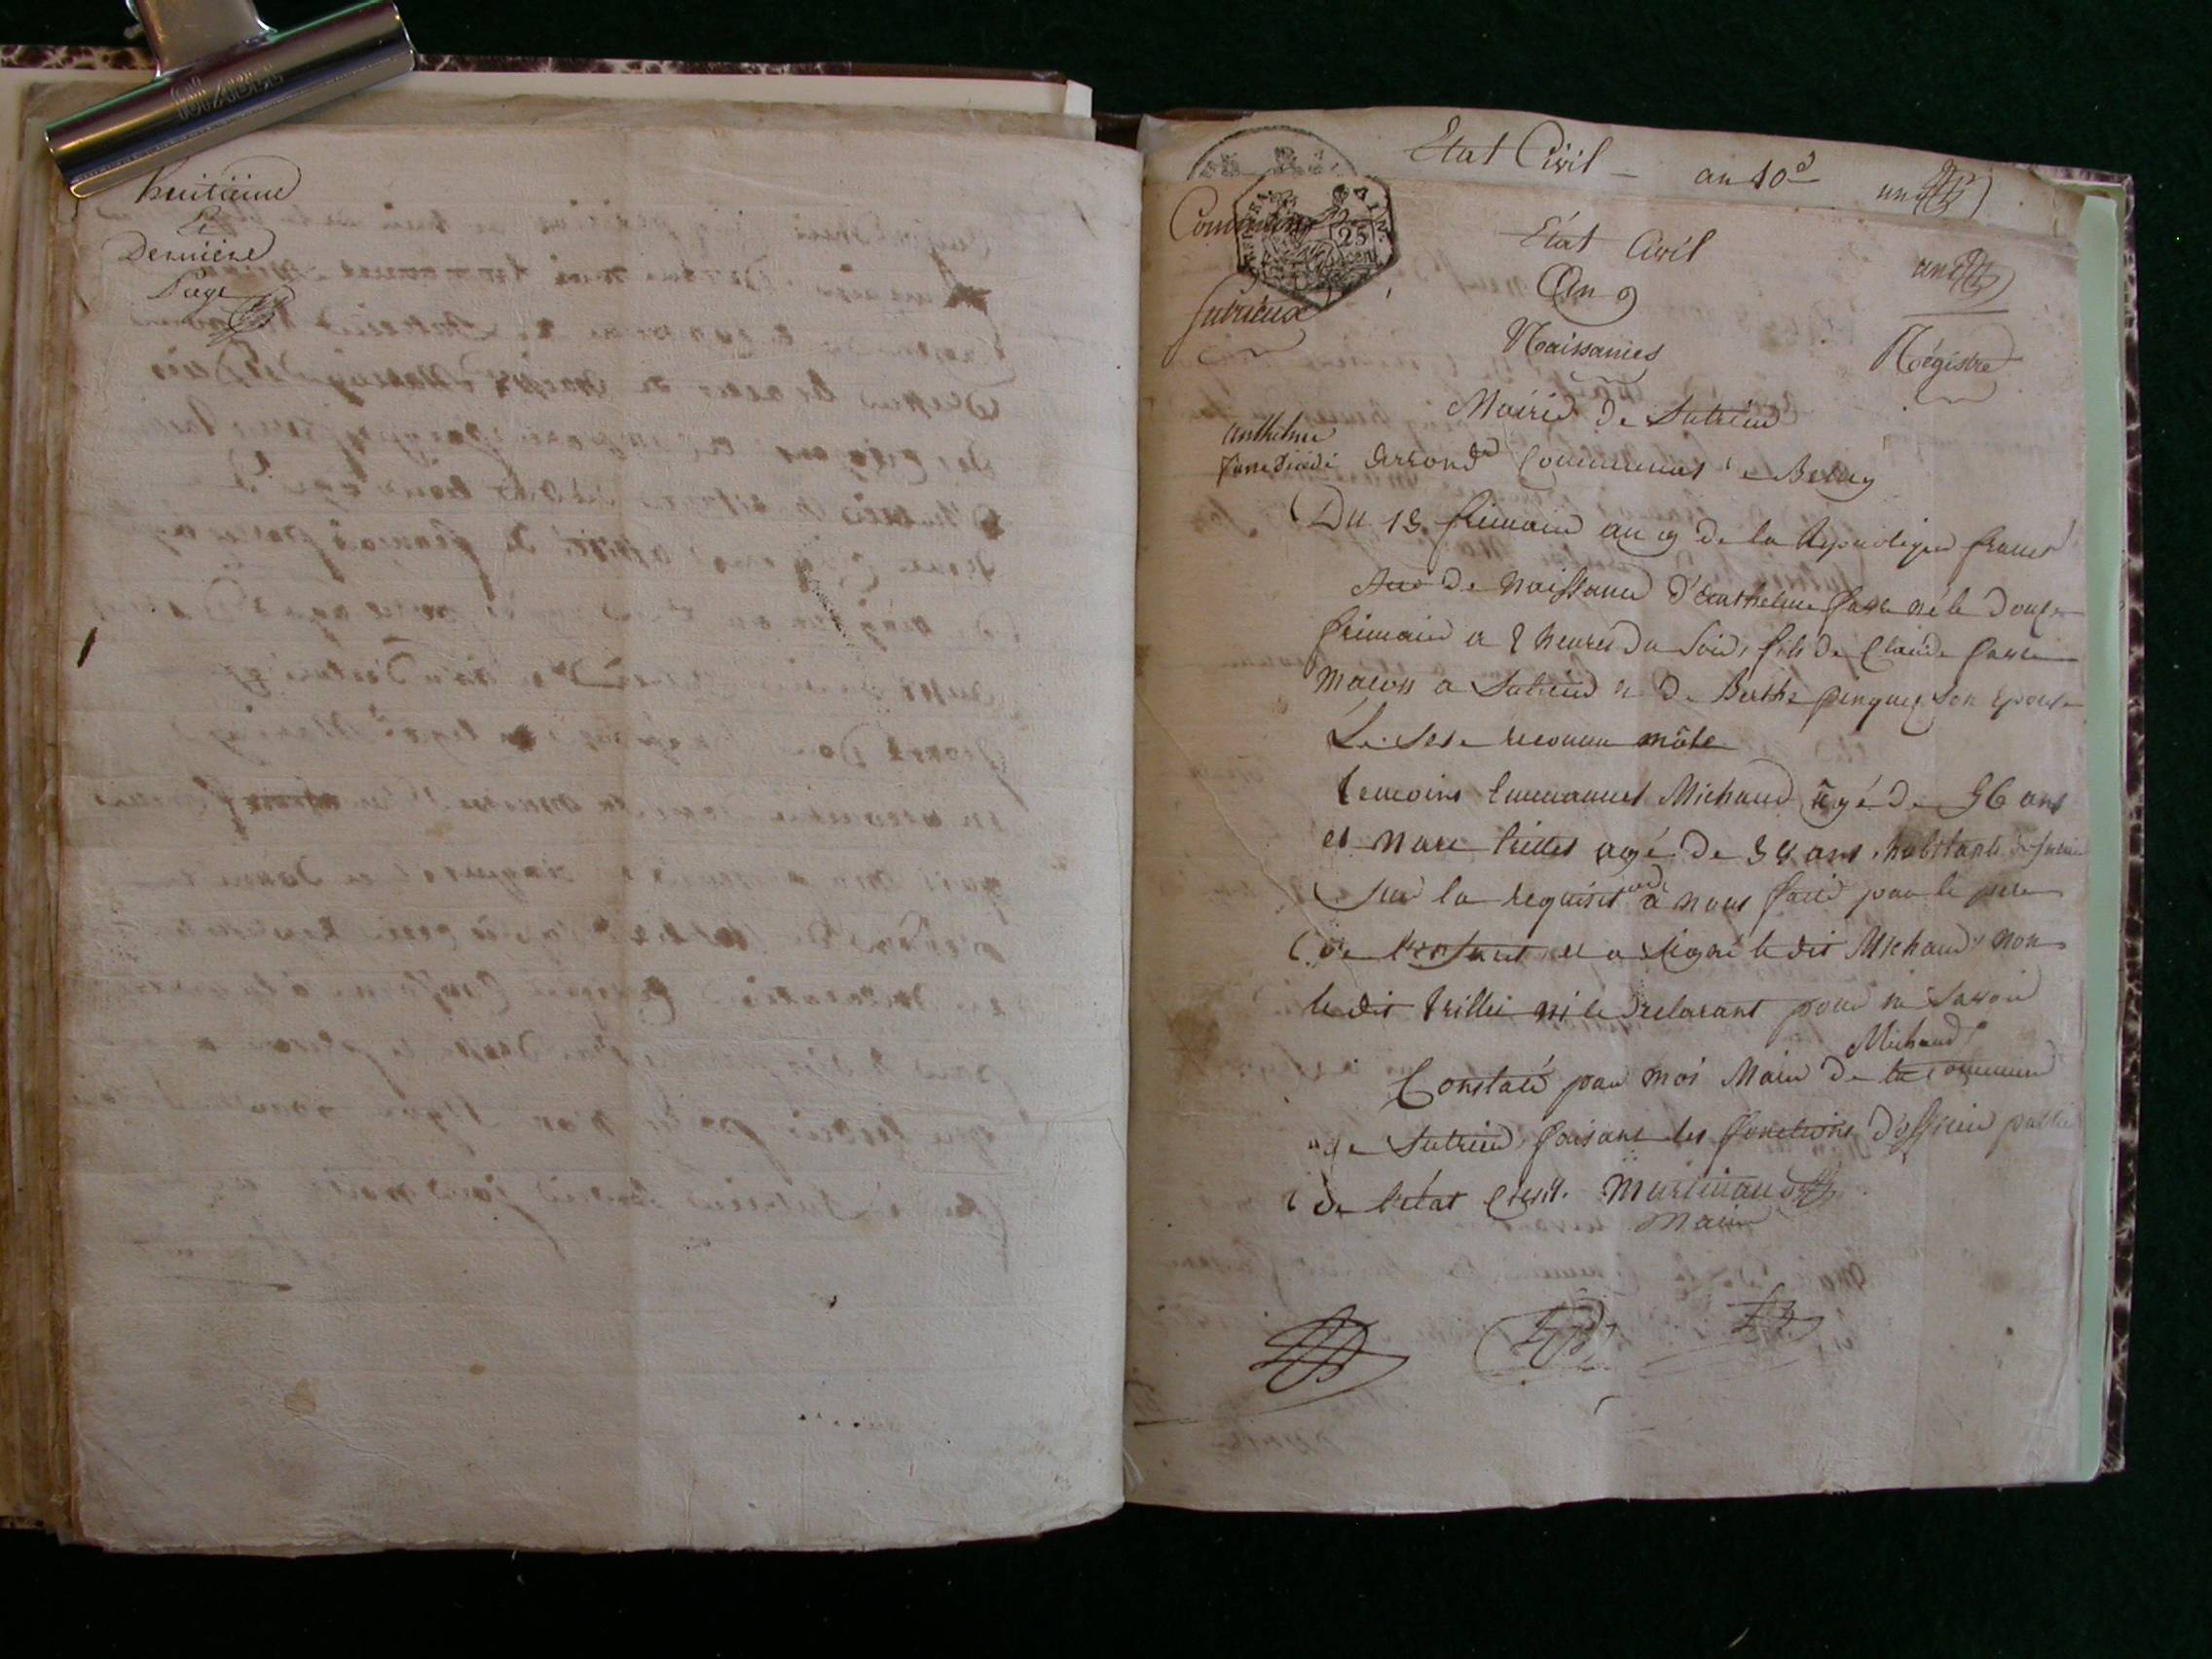 huitieme
et
Derniere
Page
Etat Civil - an 10e
Commune
25
cent
Sutrieux
Etat Civil
An 9
Naissances
Régistre
Mairie De Sutrieu
anthelme
farre Décédé
Arrond Communal De Belley
Du 15 frimaire an 9 de la République franc
Acte De Naissance d'anthelme farre né le Douze
frimaire a 8 heures Du Soir, fils De Claude farre
Macon a Sutrieu et De Berthe pinguet Son Epouse
Le Sexe reconnu mâle
temoins Emmanuel Michaud âgé De 56 ans
et Marc trillet agé De 34 ans, habitants de Sutrieu
Sur la requisit a nous faite par le pere
De l'enfant et a Signé le dit Michaud non
le dit trillet ni le Declarant pour ne Savoir
Michaud
Constaté par moi Maire De la Commune
De Sutrieu faisant les fonctions D'officier public
De l'état Civil. Martinand
Maire